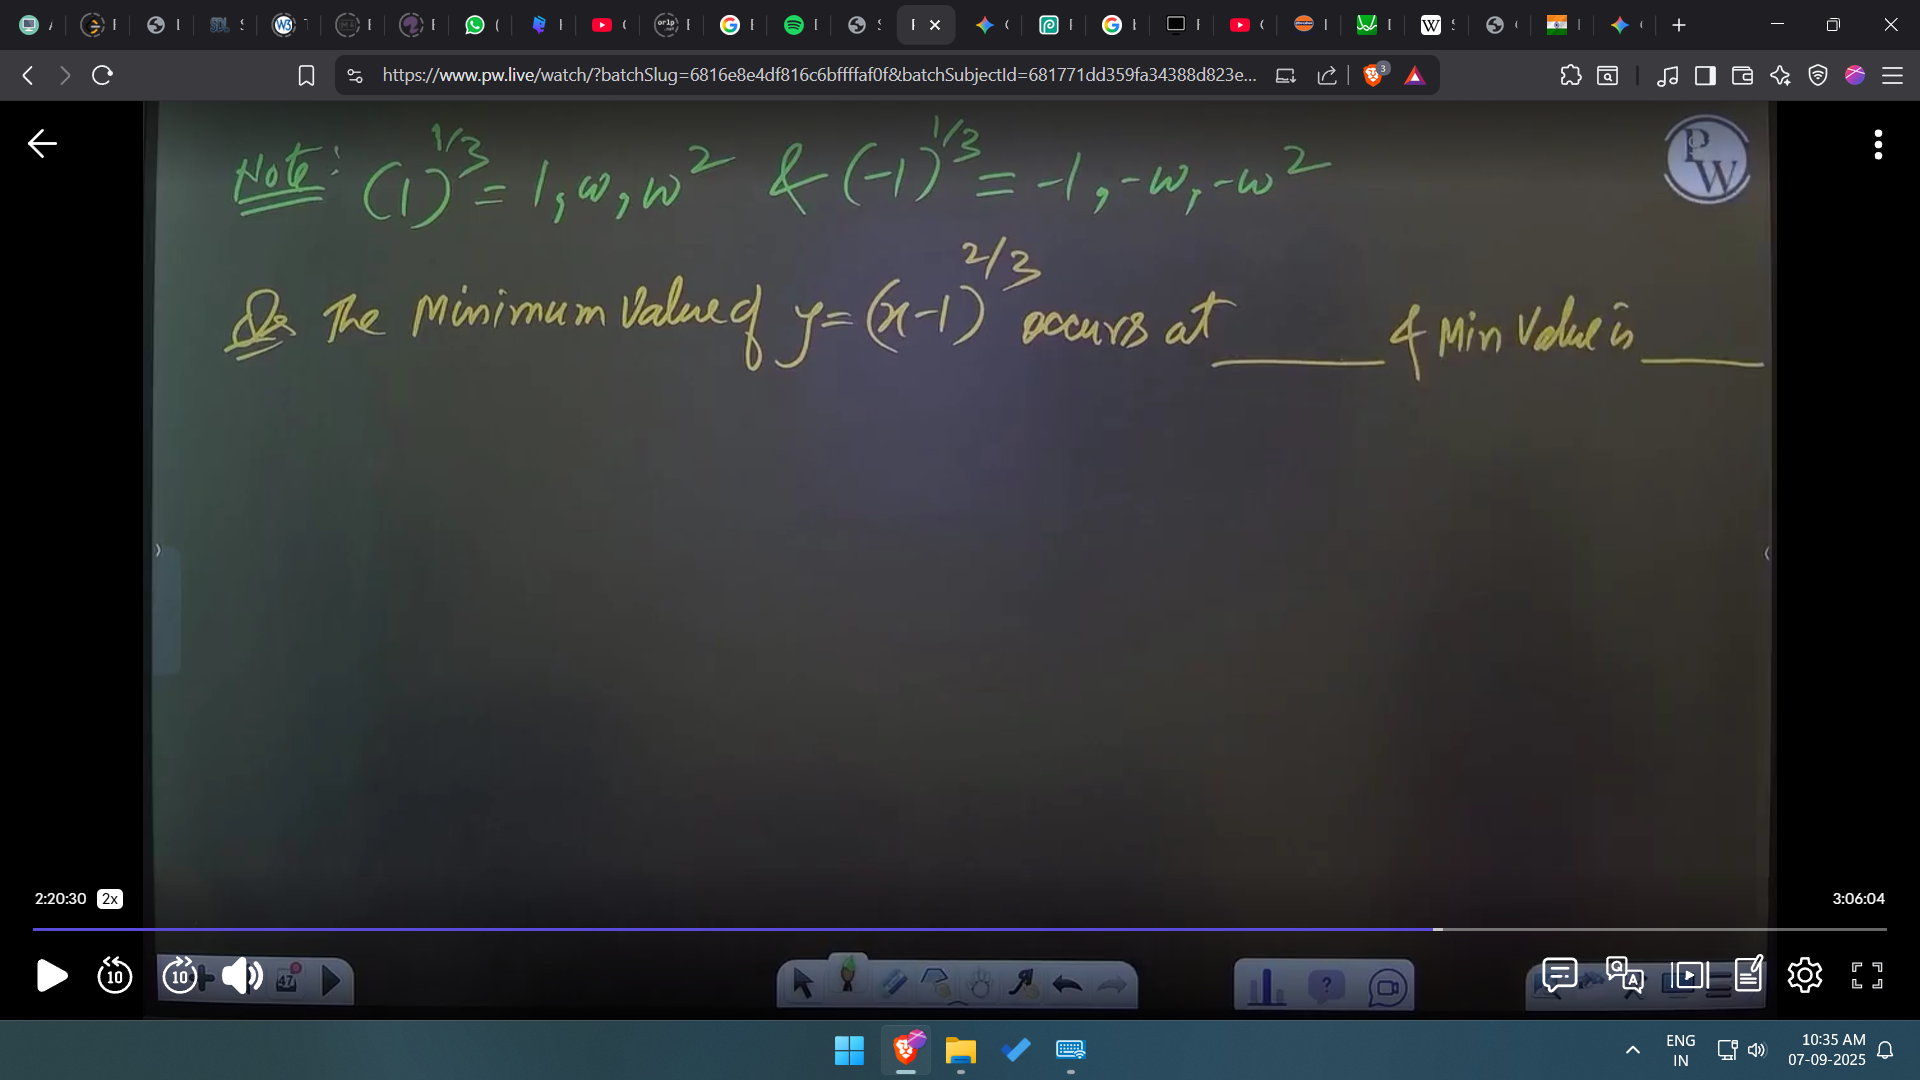 https://www.pw.live/watch/?batchSlug=6816e8e4df816c6bffffaf0f&batchSubjectId=681771dd359fa34388d823e...
3
Note: (1)^1/3 = 1, ω, ω² & (-1)^1/3 = -1, -ω, -ω²
PW
Qs The Minimum Value of y=(x-1)^2/3 occurs at ______ & Min Value is ______
2:20:30 2x
3:06:04
10 10 47
ENG
IN
10:35 AM
07-09-2025